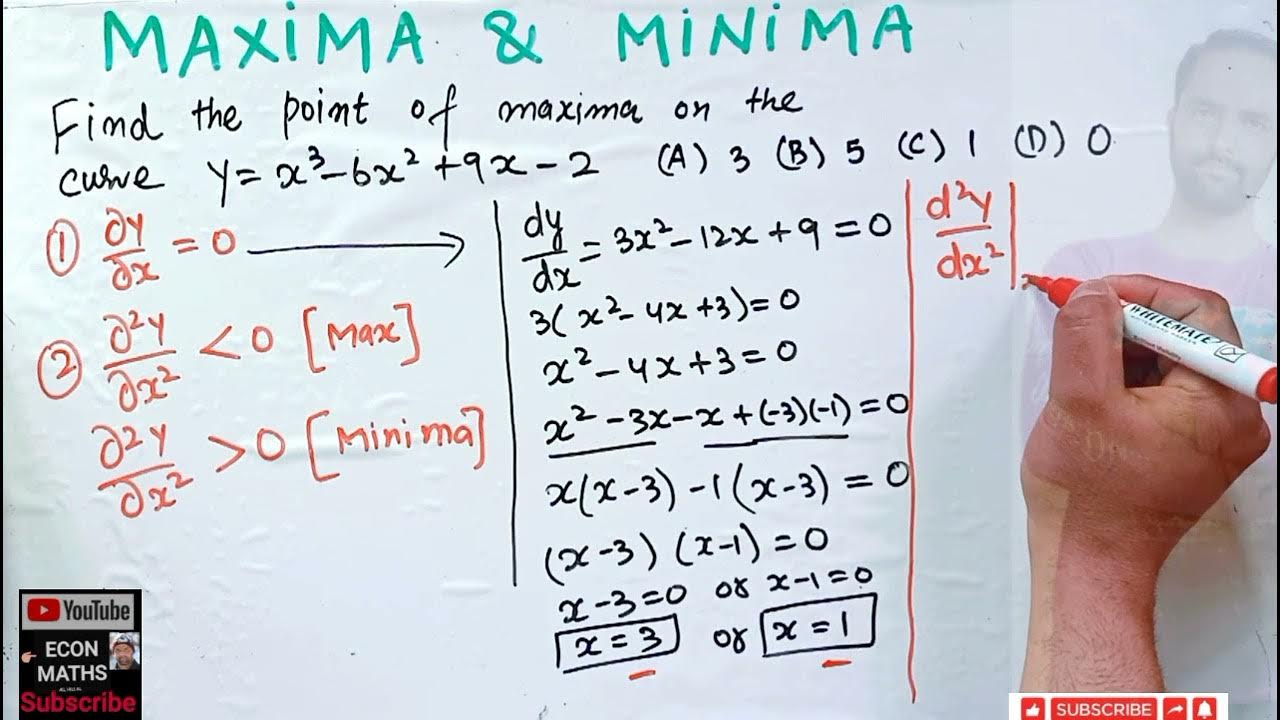 MAXIMA & MINIMA
Find the point of maxima on the
curve y = x³ - 6x² + 9x - 2 (A) 3 (B) 5 (C) 1 (D) 0
① ∂y/∂x = 0 ⟶
② ∂²y/∂x² < 0 [Max]
∂²y/∂x² > 0 [Minima]
dy/dx = 3x² - 12x + 9 = 0
3(x² - 4x + 3) = 0
x² - 4x + 3 = 0
x² - 3x - x + (-3)(-1) = 0
x(x-3) - 1(x-3) = 0
(x-3) (x-1) = 0
x-3=0 or x-1=0
x = 3 or x = 1
d²y/dx² |
WHITEMATE
YouTube
ECON
MATHS
Subscribe
SUBSCRIBE